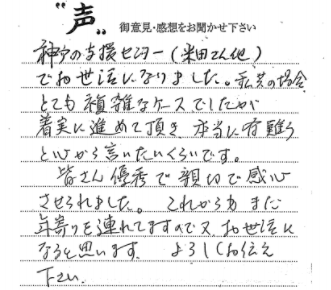 "声"
御意見・感想をお聞かせ下さい
神戸の支援センター(米田さん他)
でお世話になりました。私共の場合
とても複雑なケースでしたが
着実に進めて頂き 本当に有難う
と心から言いたいくらいです。
皆さん優秀で親切で感心
させられました。 これからもまだ
年寄りを連れてますので又お世話に
なると思います. よろしくお伝え
下さい.